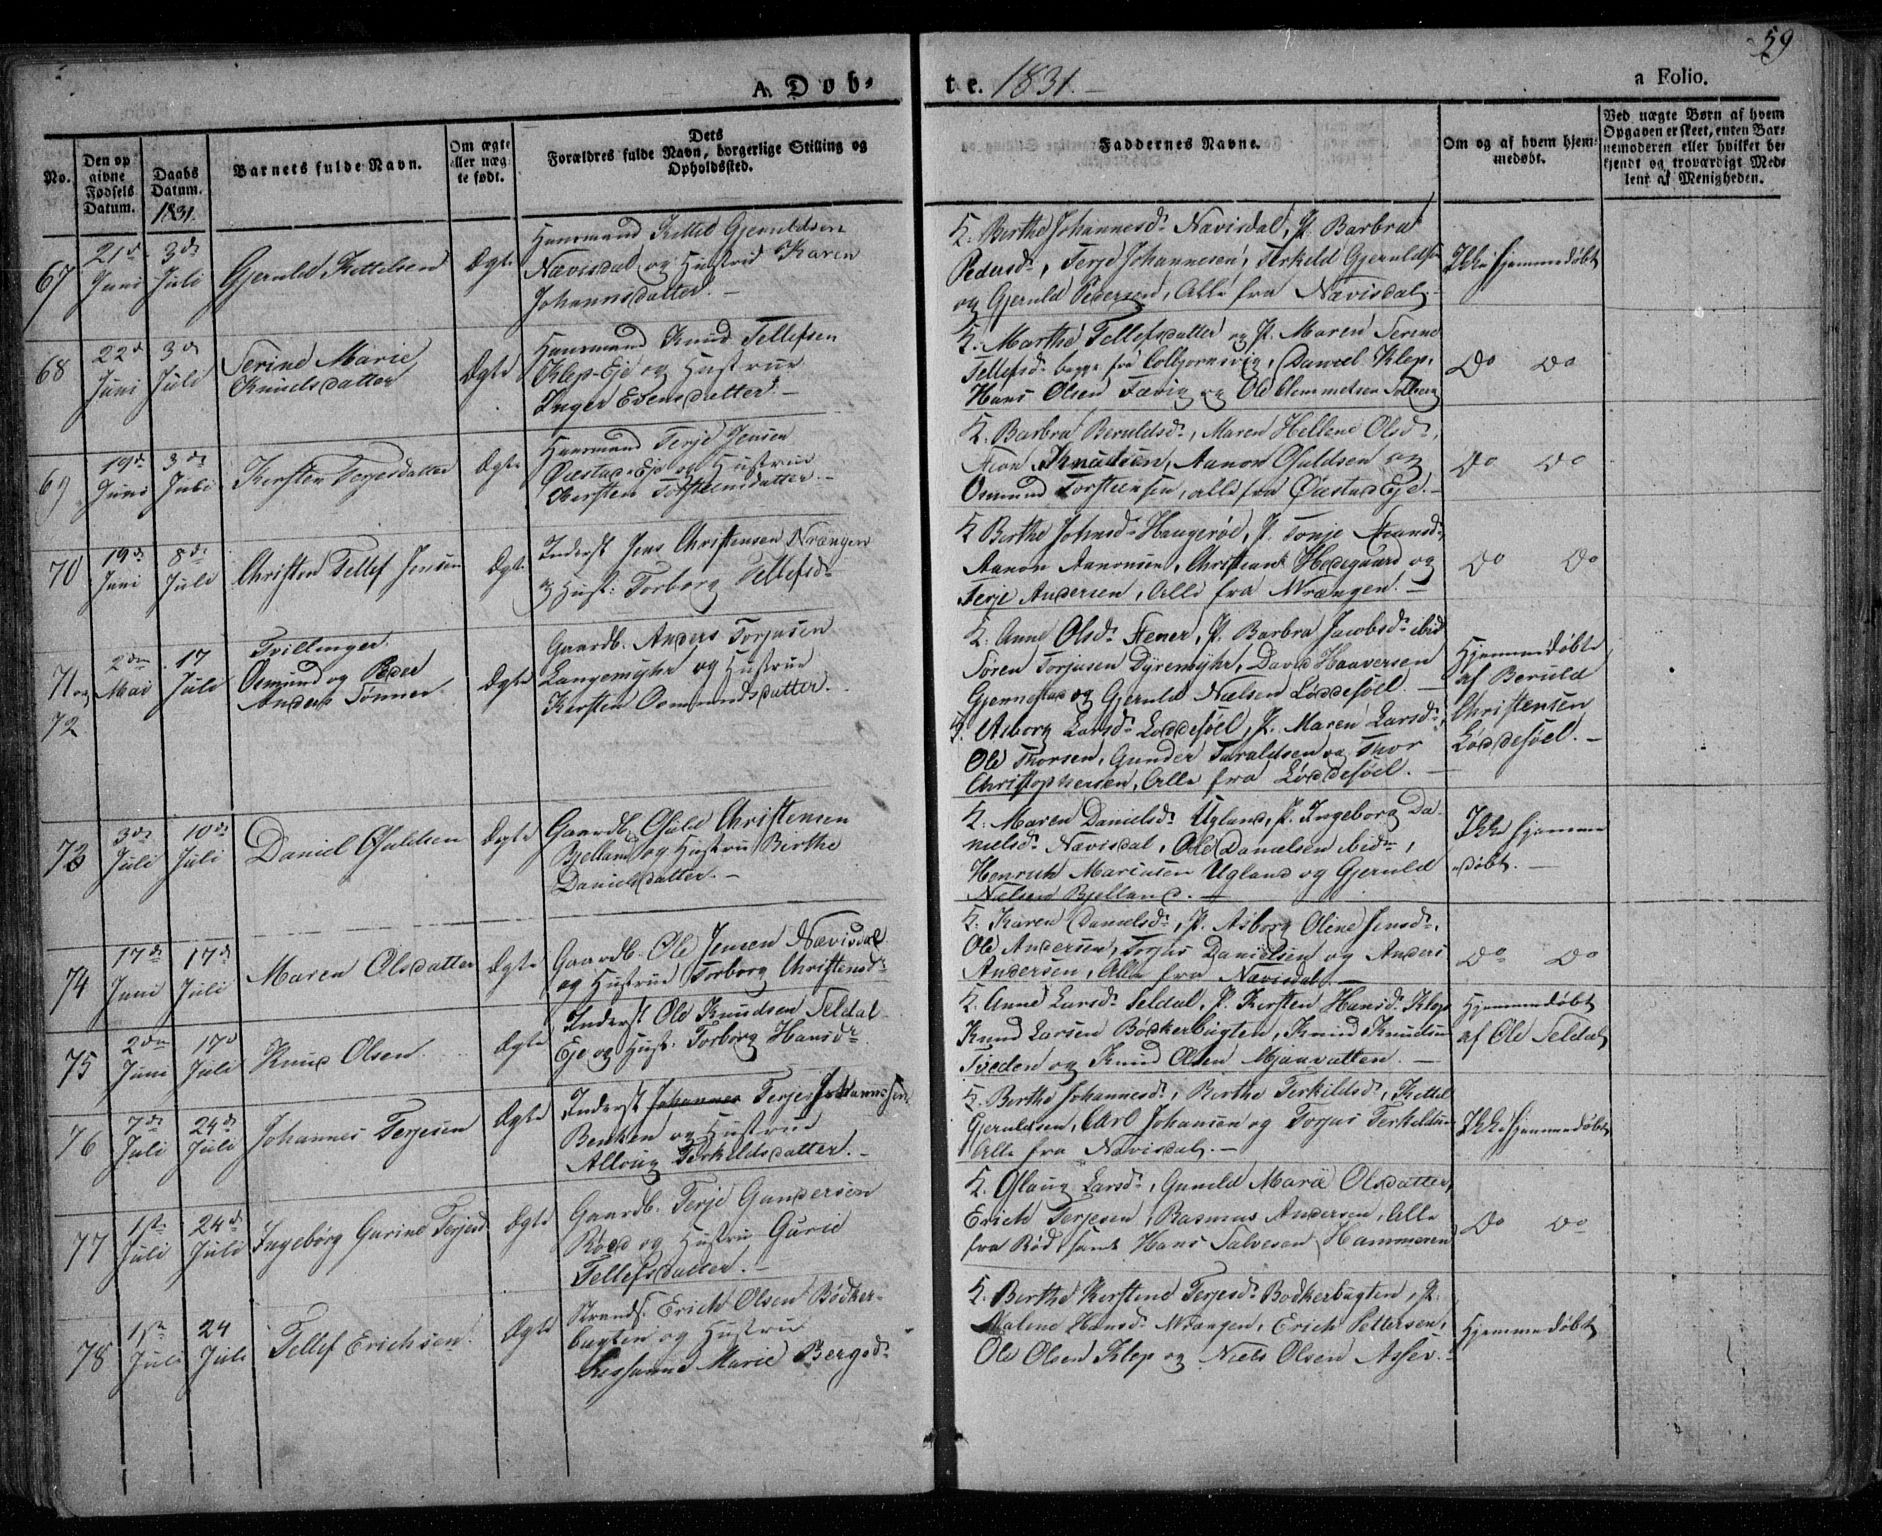 59
A. Døb-
te. 1831.
a Folio.
No.
Den op
givne
Fødsels
Datum.
Daabs
Datum.
1831.
Barnets fulde Navn.
Om ægte
eller uæg-
te født.
Dets
Forældres fulde Navn, borgerlige Stilling og
Opholdssted.
Faddernes Navne.
Om og af hvem hjem-
medøbt.
Ved uægte Børn af hvem
Opgaven er skeet, enten Bar-
nemoderen eller hvilket be-
kjendt og troværdigt Med-
lem af Menigheden.
67
21de
Juni
3de
Juli
Gjeruld Kittelsen
Ægte
Huusmand Kittel Gjeruldsen
Nævisdal og Hustrue Karen
Johannsdatter.
K. Berthe Johannesd. Nævisdal, P. Barbra
Pedersd., Terje Johannesen, Terkeld Gjeruldsen
og Gjeruld Pedersen, Alle fra Nævisdal
Ikke hjemmedøbt
68
22d
Juni
3de
Juli
Serine Marie
Knudsdatter
Ægte
Huusmand Knud Tellefsen
Klep-Eje og Hustrue
Inger Evensdatter.
K. Marthe Tellefsdatter og P. Maren Serine
Tellefsd. begge fra Colbjørnsvig, Daniel Klep,
Hans Olsen Fævig og Ole Clemmetsen
Do Do
69
19de
Juni
3de
Juli
Kersten Terjesdatter
Ægte
Huusmand Terje Jensen
Øiestad-Eje og Hustrue
Kersten Torsteensdatter.
K. Barbra Beruldsd., Maren Hellene Olsd.,
Knudsen, Aanon Ofuldsen og
Osmund Torsteensen, alle fra Øiestad Eje.
Do Do
70
19de
Juni
8de
Juli
Christen Tellef Jensen
Ægte
Inderst Jens Christensen Vrængen
og Hust. Torborg Tellefsd.
K Berthe Johnsd. Haugerød, P. Tonje
Aanon Aanonsen, Christian Hedegaard og
Terje Andersen, Alle fra Vrængen.
Do Do
71 og
72
2den
Mai
17
Juli
Tvillinger
Osmund og Peder
Anders Sønner
Ægte
Gaardb. Anders Torjusen
Langemyhr og Hustrue
Kersten Osmundsdatter.
K. Anne Olsd. Stener, P. Barbra Jacobsd. ibid
Søren Torjusen Dyremyhr, David Haaversen
Gjennestad og Gjeruld Nielsen Løddesøel.
K. Asborg Larsd. Løddesøel, P. Maren Larsd.,
Ole Thorsen, Gunder Taraldsen og Thor
Christophersen, Alle fra Løddesøel.
Hjemmedøbte
af Beruld
Christensen
Løddesøel.
73
3de
Juli
10de
Juli
Daniel Ofuldsen
Ægte
Gaardb. Ofuld Christensen
Bjelland og Hustrue Birthe
Danielsdatter.
K. Maren Danielsd. Ugland, P. Ingeborg Da-
nielsd. Nævisdal, Ole Danielsen ibid.,
Henrich Mariusen Ugland og Gjeruld
Nielsen Bjelland.
Ikke hjemme
døbt.
74
17de
Juni
17de
Juli
Maren Olsdatter
Ægte
Gaardb. Ole Jensen Nævisdal
og Hustrue Torborg Christensd.
K. Karen Danielsd., P. Asborg Oline Jensd.,
Ole Andersen, Torjus Danielsen og Anders
Andersen, Alle fra Nævisdal.
Do Do
75
2den
Juni
17d
Juli
Knud Olsen
Ægte
Inderst Ole Knudsen Seldal
Eje og Hust. Torborg Hansd.
K. Anne Larsd. Seldal, P. Kersten Hansd. Klep
Knud Larsen Bødkerbugten, Knud Knudsen
Sveden og Knud Olsen Mjaavatten.
Hjemmedøbt
af Ole Seldal
76
7de
Juli
24de
Juli
Johannes Terjesen
Ægte
Inderst Johannes Terje Johannessen
Benken og Hustrue
Alloug Terkeldsdatter.
K. Berthe Johannesd., Berthe Terkildsd., Kittel
Gjeruldsen, Carl Johansen og Torjus Terkeldsen
Alle fra Nævisdal.
Ikke hjemmedøbt
77
1ste
Juli
24de
Juli
Ingebørg Gurine Terjesd.
Ægte
Gaardb. Terje Gundersen
Röed og Hustrue Gurie
Tellefsdatter.
K. Oflaug Larsd., Guneld Maria Olsdatter,
Erich Terjesen, Rasmus Andersen, Alle
fra Rød, samt Hans Salvesen Hammeren
Do Do
78
1ste
Juli
24
Juli
Tellef Erichsen
Ægte
Strands. Erich Olsen Bødker-
bugten og Hustrue
Susanne Marie Bergsd.
K. Berthe Kerstene Terjesd. Bødkerbugten, P.
Malene Hansd. Vrængen, Erich Pettersen,
Ole Olsen Klep og Niels Olsen Assev.
Hjemmedøbt